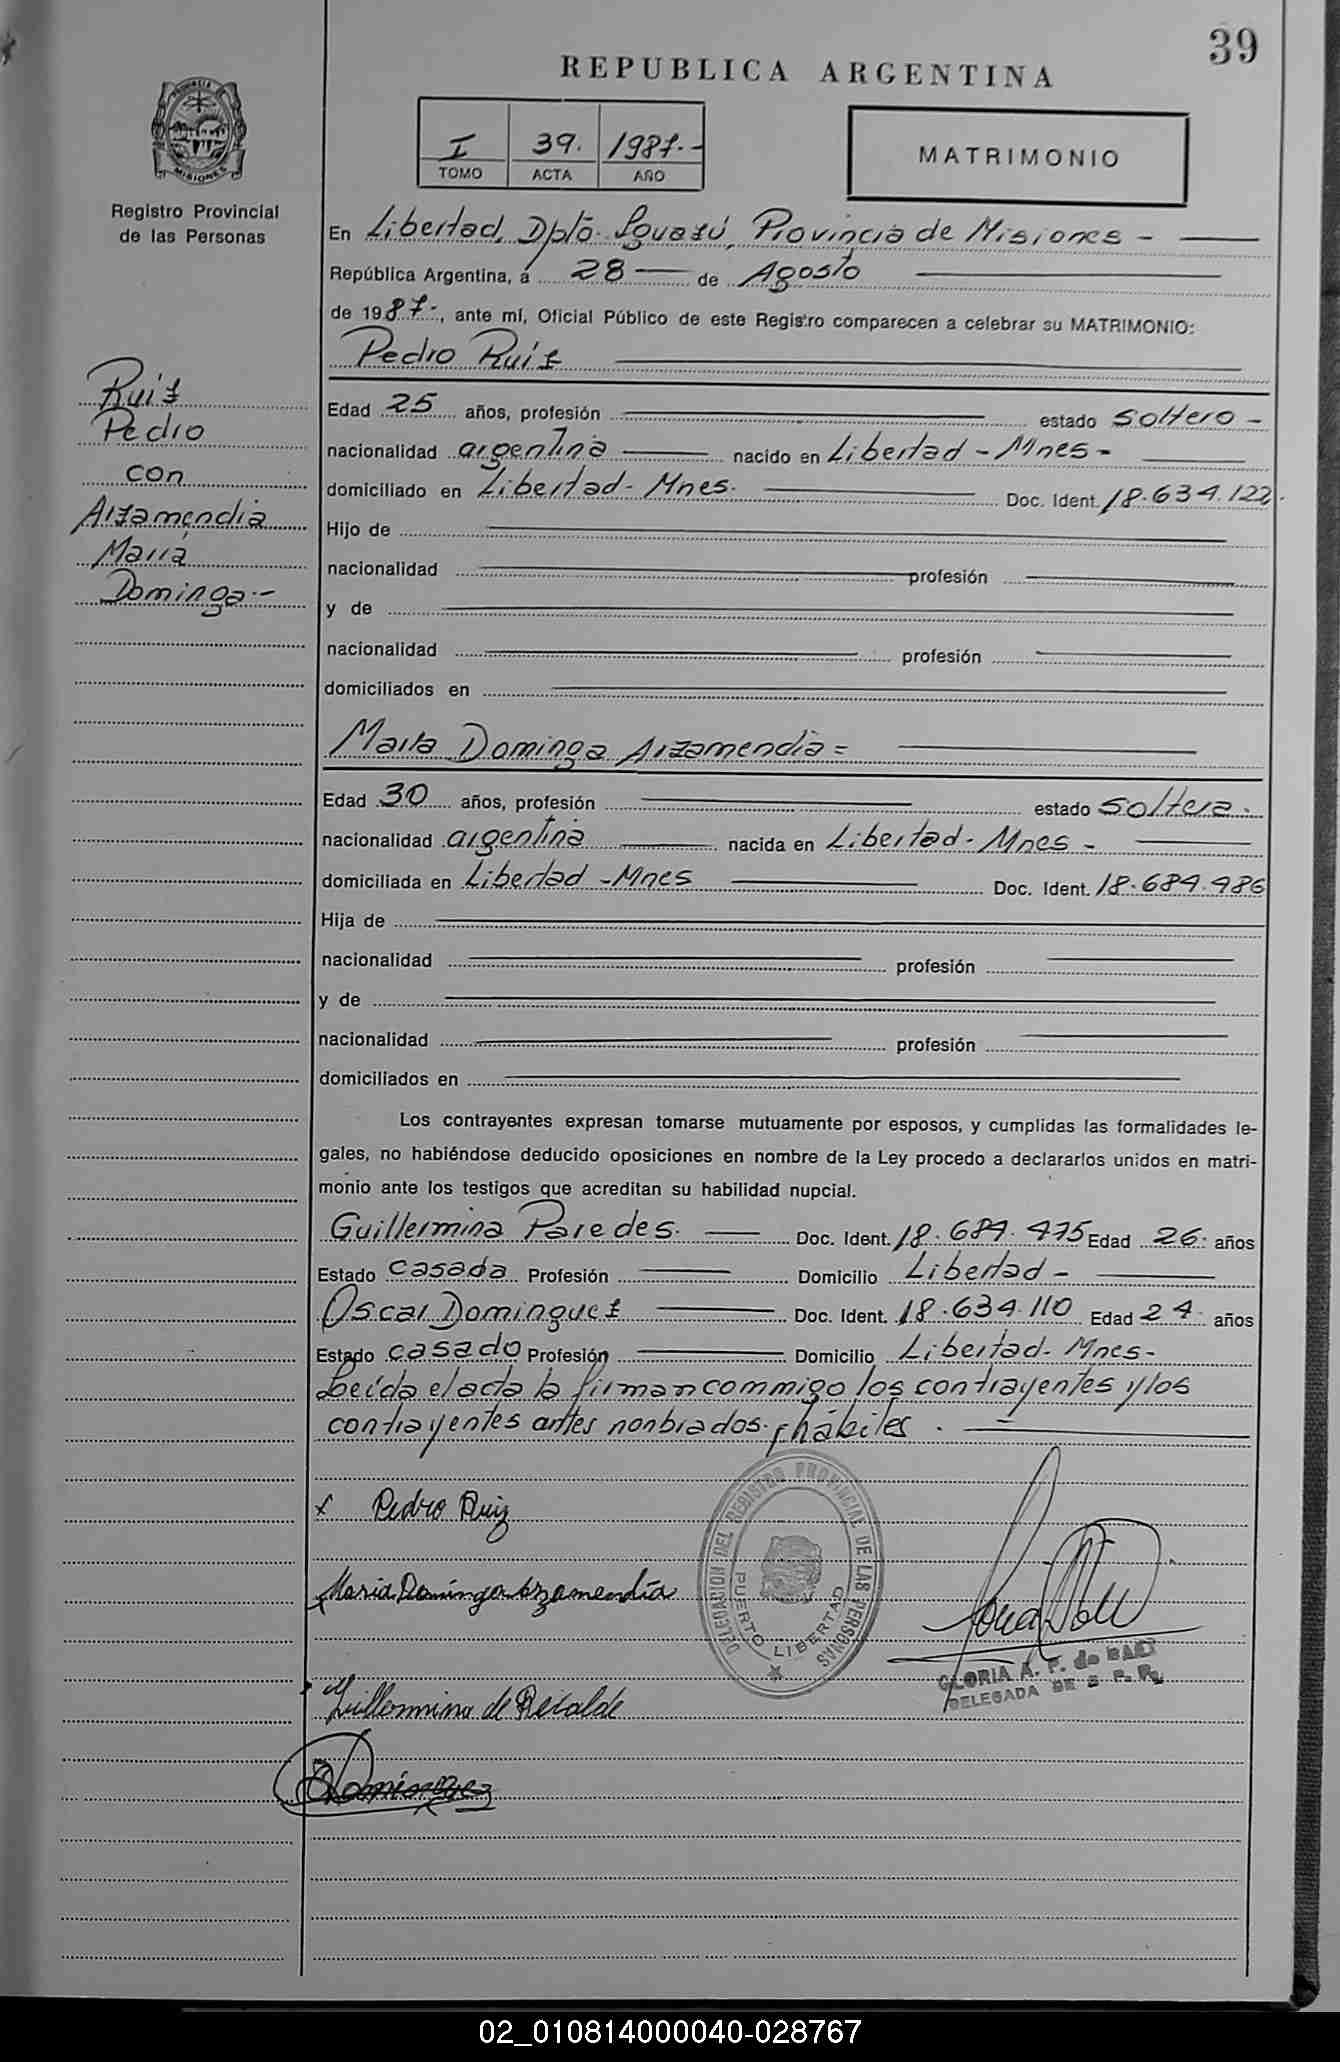 39
REPUBLICA ARGENTINA
PROVINCIA DE
MISIONES
Registro Provincial
de las Personas
I 39. 1987.-
TOMO ACTA AÑO
MATRIMONIO
En Libertad, Dpto. Iguazú, Provincia de Misiones -
República Argentina, a 28 de Agosto
de 1987-, ante mí, Oficial Público de este Registro comparecen a celebrar su MATRIMONIO:
Pedro Ruiz
Ruiz
Pedro
con
Arzamendia
María
Dominga.-
Edad 25 años, profesión estado soltero-
nacionalidad argentina nacido en Libertad - Mnes-
domiciliado en Libertad- Mnes. Doc. Ident. 18.634.122.
Hijo de
nacionalidad profesión
y de
nacionalidad profesión
domiciliados en
Maria Dominga Arzamendia=
Edad 30 años, profesión estado soltera.
nacionalidad argentina nacida en Libertad- Mnes -
domiciliada en Libertad -Mnes Doc. Ident. 18.684.486
Hija de
nacionalidad profesión
y de
nacionalidad profesión
domiciliados en
Los contrayentes expresan tomarse mutuamente por esposos, y cumplidas las formalidades le-
gales, no habiéndose deducido oposiciones en nombre de la Ley procedo a declararlos unidos en matri-
monio ante los testigos que acreditan su habilidad nupcial.
Guillermina Paredes. Doc. Ident. 18.684.475 Edad 26. años
Estado casada Profesión Domicilio Libertad -
Oscar Dominguez Doc. Ident. 18.634.110 Edad 24. años
Estado casado Profesión Domicilio Libertad- Mnes-
Leída el acta la firman commigo los contrayentes y los
contrayentes antes nonbrados. hábiles.
x Pedro Ruiz
DELEGACION DEL REGISTRO PROVINCIAL DE LAS PERSONAS
PUERTO LIBERTAD
x Maria Dominga Arzamendia
GLORIA A. F. de
DELEGADA DE
Guillermina de Recalde
Dominguez
02_010814000040-028767